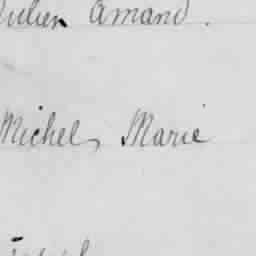 Julien Amand.
Michel, Marie